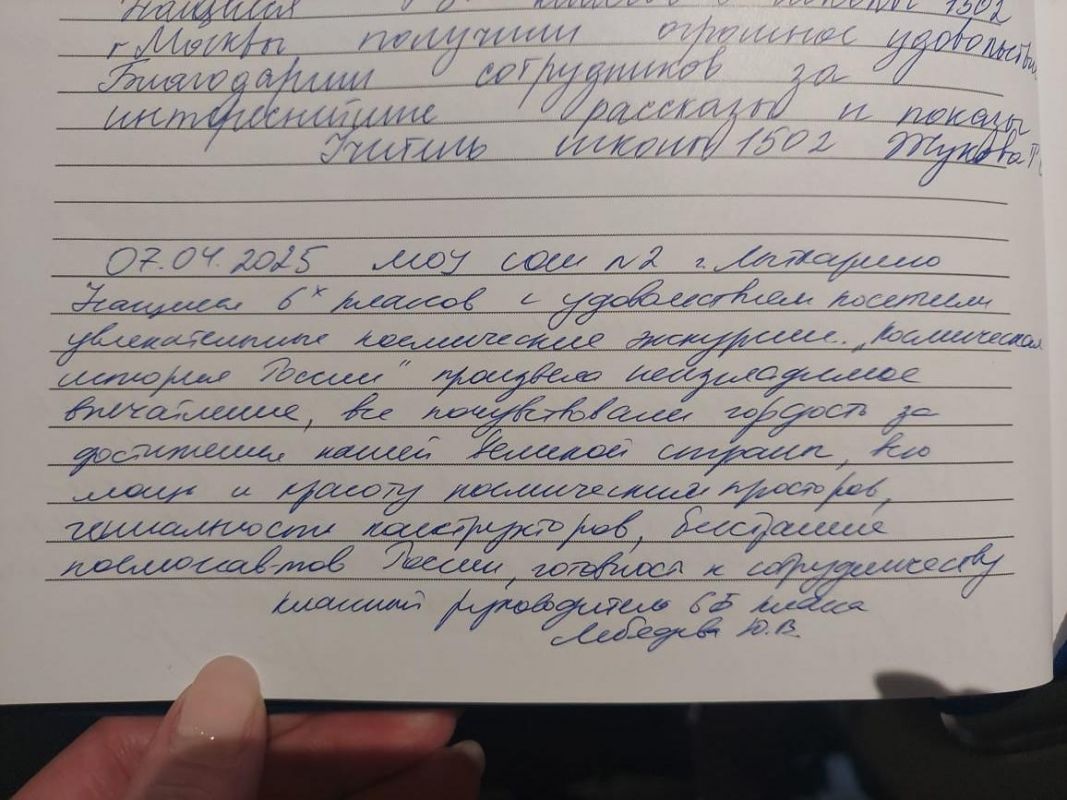 Учащиеся классов школы 1502
г Москвы получили огромное удовольствие
Благодарим сотрудников за
интереснейшие рассказы и показы
Учитель школы 1502 Жукова
07.04.2025 МОУ СОШ №2 г. Лыткарино
Учащиеся 6х классов с удовольствием посетили
увлекательные космические экскурсии. „Космическая
история России" произвела неизгладимое
впечатление, все почувствовали гордость за
достижения нашей Великой страны, всю
мощь и красоту космических просторов,
гениальности конструкторов, бесстрашие
космонавтов России, готовность к сотрудничеству
классный руководитель 6Б класса
Лебедева Ю.В.